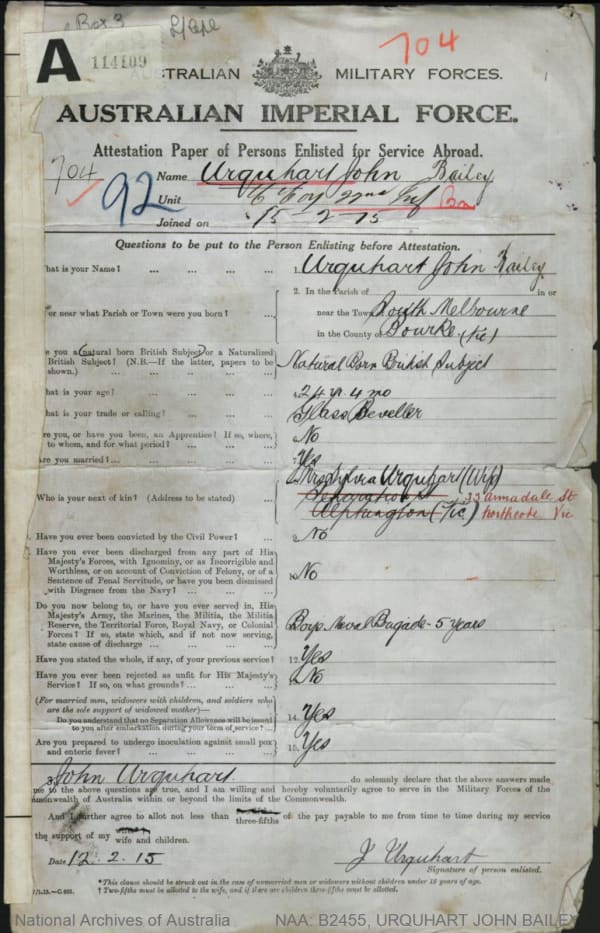 Box 3
L/Cpl
704
A
114109
AUSTRALIAN MILITARY FORCES.
AUSTRALIAN IMPERIAL FORCE.
Attestation Paper of Persons Enlisted for Service Abroad.
704
92
Name Urquhart John Bailey
Unit C Coy 22nd Inf Bn
Joined on 15-2-15
Questions to be put to the Person Enlisting before Attestation.
hat is your Name? ... ... ... ... 1. Urquhart John Bailey
2. In the Parish of in or
or near what Parish or Town were you born? ... near the Town South Melbourne
in the County of Bourke (Vic)
e you a (natural born British Subject) or a Naturalized
British Subject? (N.B.—If the latter, papers to be
shown.) ... ... ... ... Natural Born British Subject
hat is your age? ... ... ... ... 24 yr. 4 mo
hat is your trade or calling? ... ... ... Glass Beveller
re you, or have you been, an Apprentice? If so, where,
to whom, and for what period? ... ... No
Are you married? ... ... ... ... Yes
Mrs Sylvia Urquhart (Wife)
Who is your next of kin? (Address to be stated) ... 13 Armadale St
Alphington (Vic.) Northcote Vic
Have you ever been convicted by the Civil Power? ... No
Have you ever been discharged from any part of His
Majesty's Forces, with Ignominy, or as Incorrigible and
Worthless, or on account of Conviction of Felony, or of a
Sentence of Penal Servitude, or have you been dismissed
with Disgrace from the Navy? ... ... 10. No
Do you now belong to, or have you ever served in, His
Majesty's Army, the Marines, the Militia, the Militia
Reserve, the Territorial Force, Royal Navy, or Colonial
Forces? If so, state which, and if not now serving,
state cause of discharge ... ... ... Boys Naval Brigade - 5 years
Have you stated the whole, if any, of your previous service? 12. Yes
Have you ever been rejected as unfit for His Majesty's
Service? If so, on what grounds? ... ... No
(For married men, widowers with children, and soldiers who
are the sole support of widowed mother)—
Do you understand that no Separation Allowance will be issued
to you after embarkation during your term of service? ... 14. Yes
Are you prepared to undergo inoculation against small pox
and enteric fever? ... ... ... ... 15. Yes
John Urquhart do solemnly declare that the above answers made
me to the above questions are true, and I am willing and hereby voluntarily agree to serve in the Military Forces of the
mmonwealth of Australia within or beyond the limits of the Commonwealth.
And I further agree to allot not less than three-fifths of the pay payable to me from time to time during my service
the support of my wife and children.
Date 12.2.15 J Urquhart
Signature of person enlisted.
*This clause should be struck out in the case of unmarried men or widowers without children under 18 years of age.
† Two-fifths must be allotted to the wife, and if there are children three-fifths must be allotted.
National Archives of Australia NAA: B2455, URQUHART JOHN BAILEY